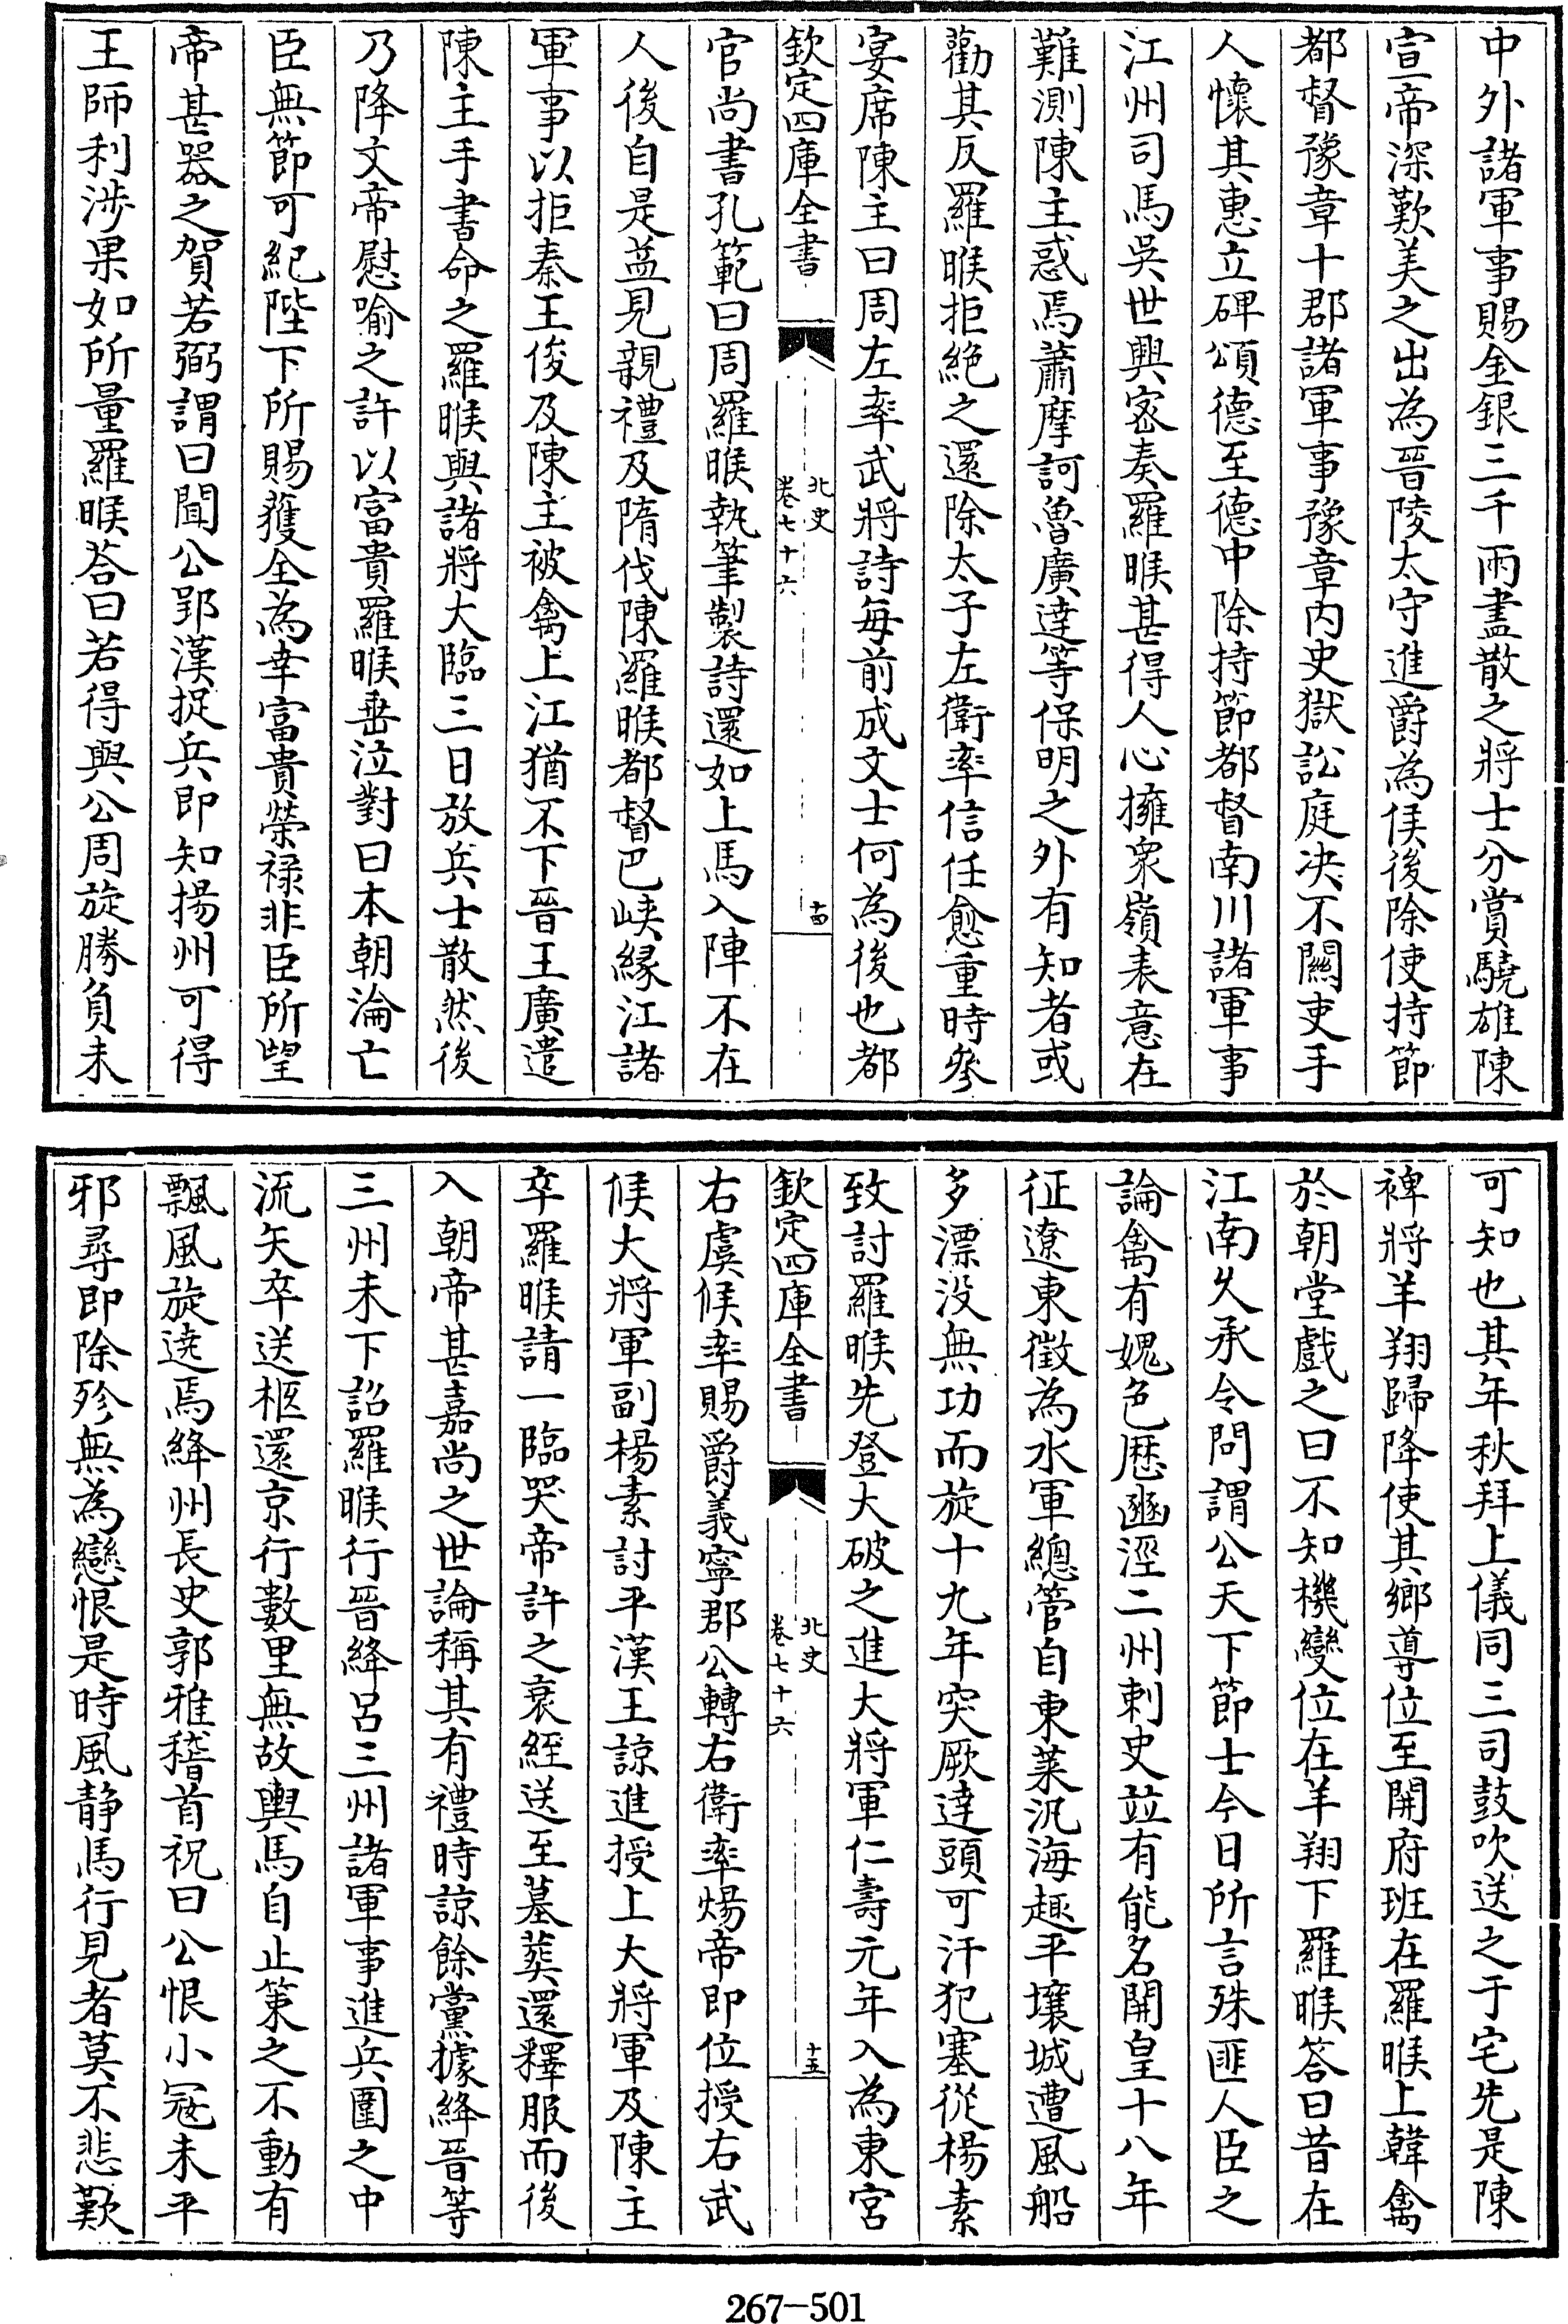 中外諸軍事賜金銀三千兩盡散之將士分賞驍雄陳
宣帝深歎美之出為晉陵太守進爵為侯後除使持節
都督豫章十郡諸軍事豫章内史獄訟庭决不關吏手
人懷其惠立碑頌德至德中除持節都督南川諸軍事
江州司馬吳世興密奏羅睺甚得人心擁衆嶺表意在
難測陳主惑焉蕭摩訶魯廣達等保明之外有知者或
勸其反羅睺拒絶之還除太子左衛率信任愈重時參
宴席陳主曰周左率武將詩每前成文士何為後也都
欽定四庫全書
北史
卷七十六
十四
官尚書孔範曰周羅睺執筆製詩還如上馬入陣不在
人後自是益見親禮及隋伐陳羅睺都督巴峽縁江諸
軍事以拒秦王俊及陳主被禽上江猶不下晉王廣遣
陳主手書命之羅睺與諸將大臨三日放兵士散然後
乃降文帝慰喻之許以富貴羅睺垂泣對曰本朝淪亡
臣無節可紀陛下所賜獲全為幸富貴榮禄非臣所望
帝甚器之賀若弼謂曰聞公郢漢捉兵即知揚州可得
王師利涉果如所量羅睺荅曰若得與公周旋勝負未
可知也其年秋拜上儀同三司鼓吹送之于宅先是陳
裨將羊翔歸降使其鄉導位至開府班在羅睺上韓禽
於朝堂戲之曰不知機變位在羊翔下羅睺答曰昔在
江南久承令問謂公天下節士今日所言殊匪人臣之
論禽有媿色歴豳涇二州刺史並有能名開皇十八年
征遼東徵為水軍總管自東萊汎海趣平壤城遭風船
多漂没無功而旋十九年突厥達頭可汗犯塞從楊素
致討羅睺先登大破之進大將軍仁壽元年入為東宮
欽定四庫全書
北史
卷七十六
十五
右虞候率賜爵義寧郡公轉右衛率煬帝即位授右武
候大將軍副楊素討平漢王諒進授上大將軍及陳主
卒羅睺請一臨哭帝許之衰絰送至墓葬還釋服而後
入朝帝甚嘉尚之世論稱其有禮時諒餘黨據絳晉等
三州未下詔羅睺行晉絳呂三州諸軍事進兵圍之中
流矢卒送柩還京行數里無故輿馬自止策之不動有
飄風旋遶焉絳州長史郭雅稽首祝曰公恨小冦未平
邪尋即除殄無為戀恨是時風静馬行見者莫不悲歎
267-501